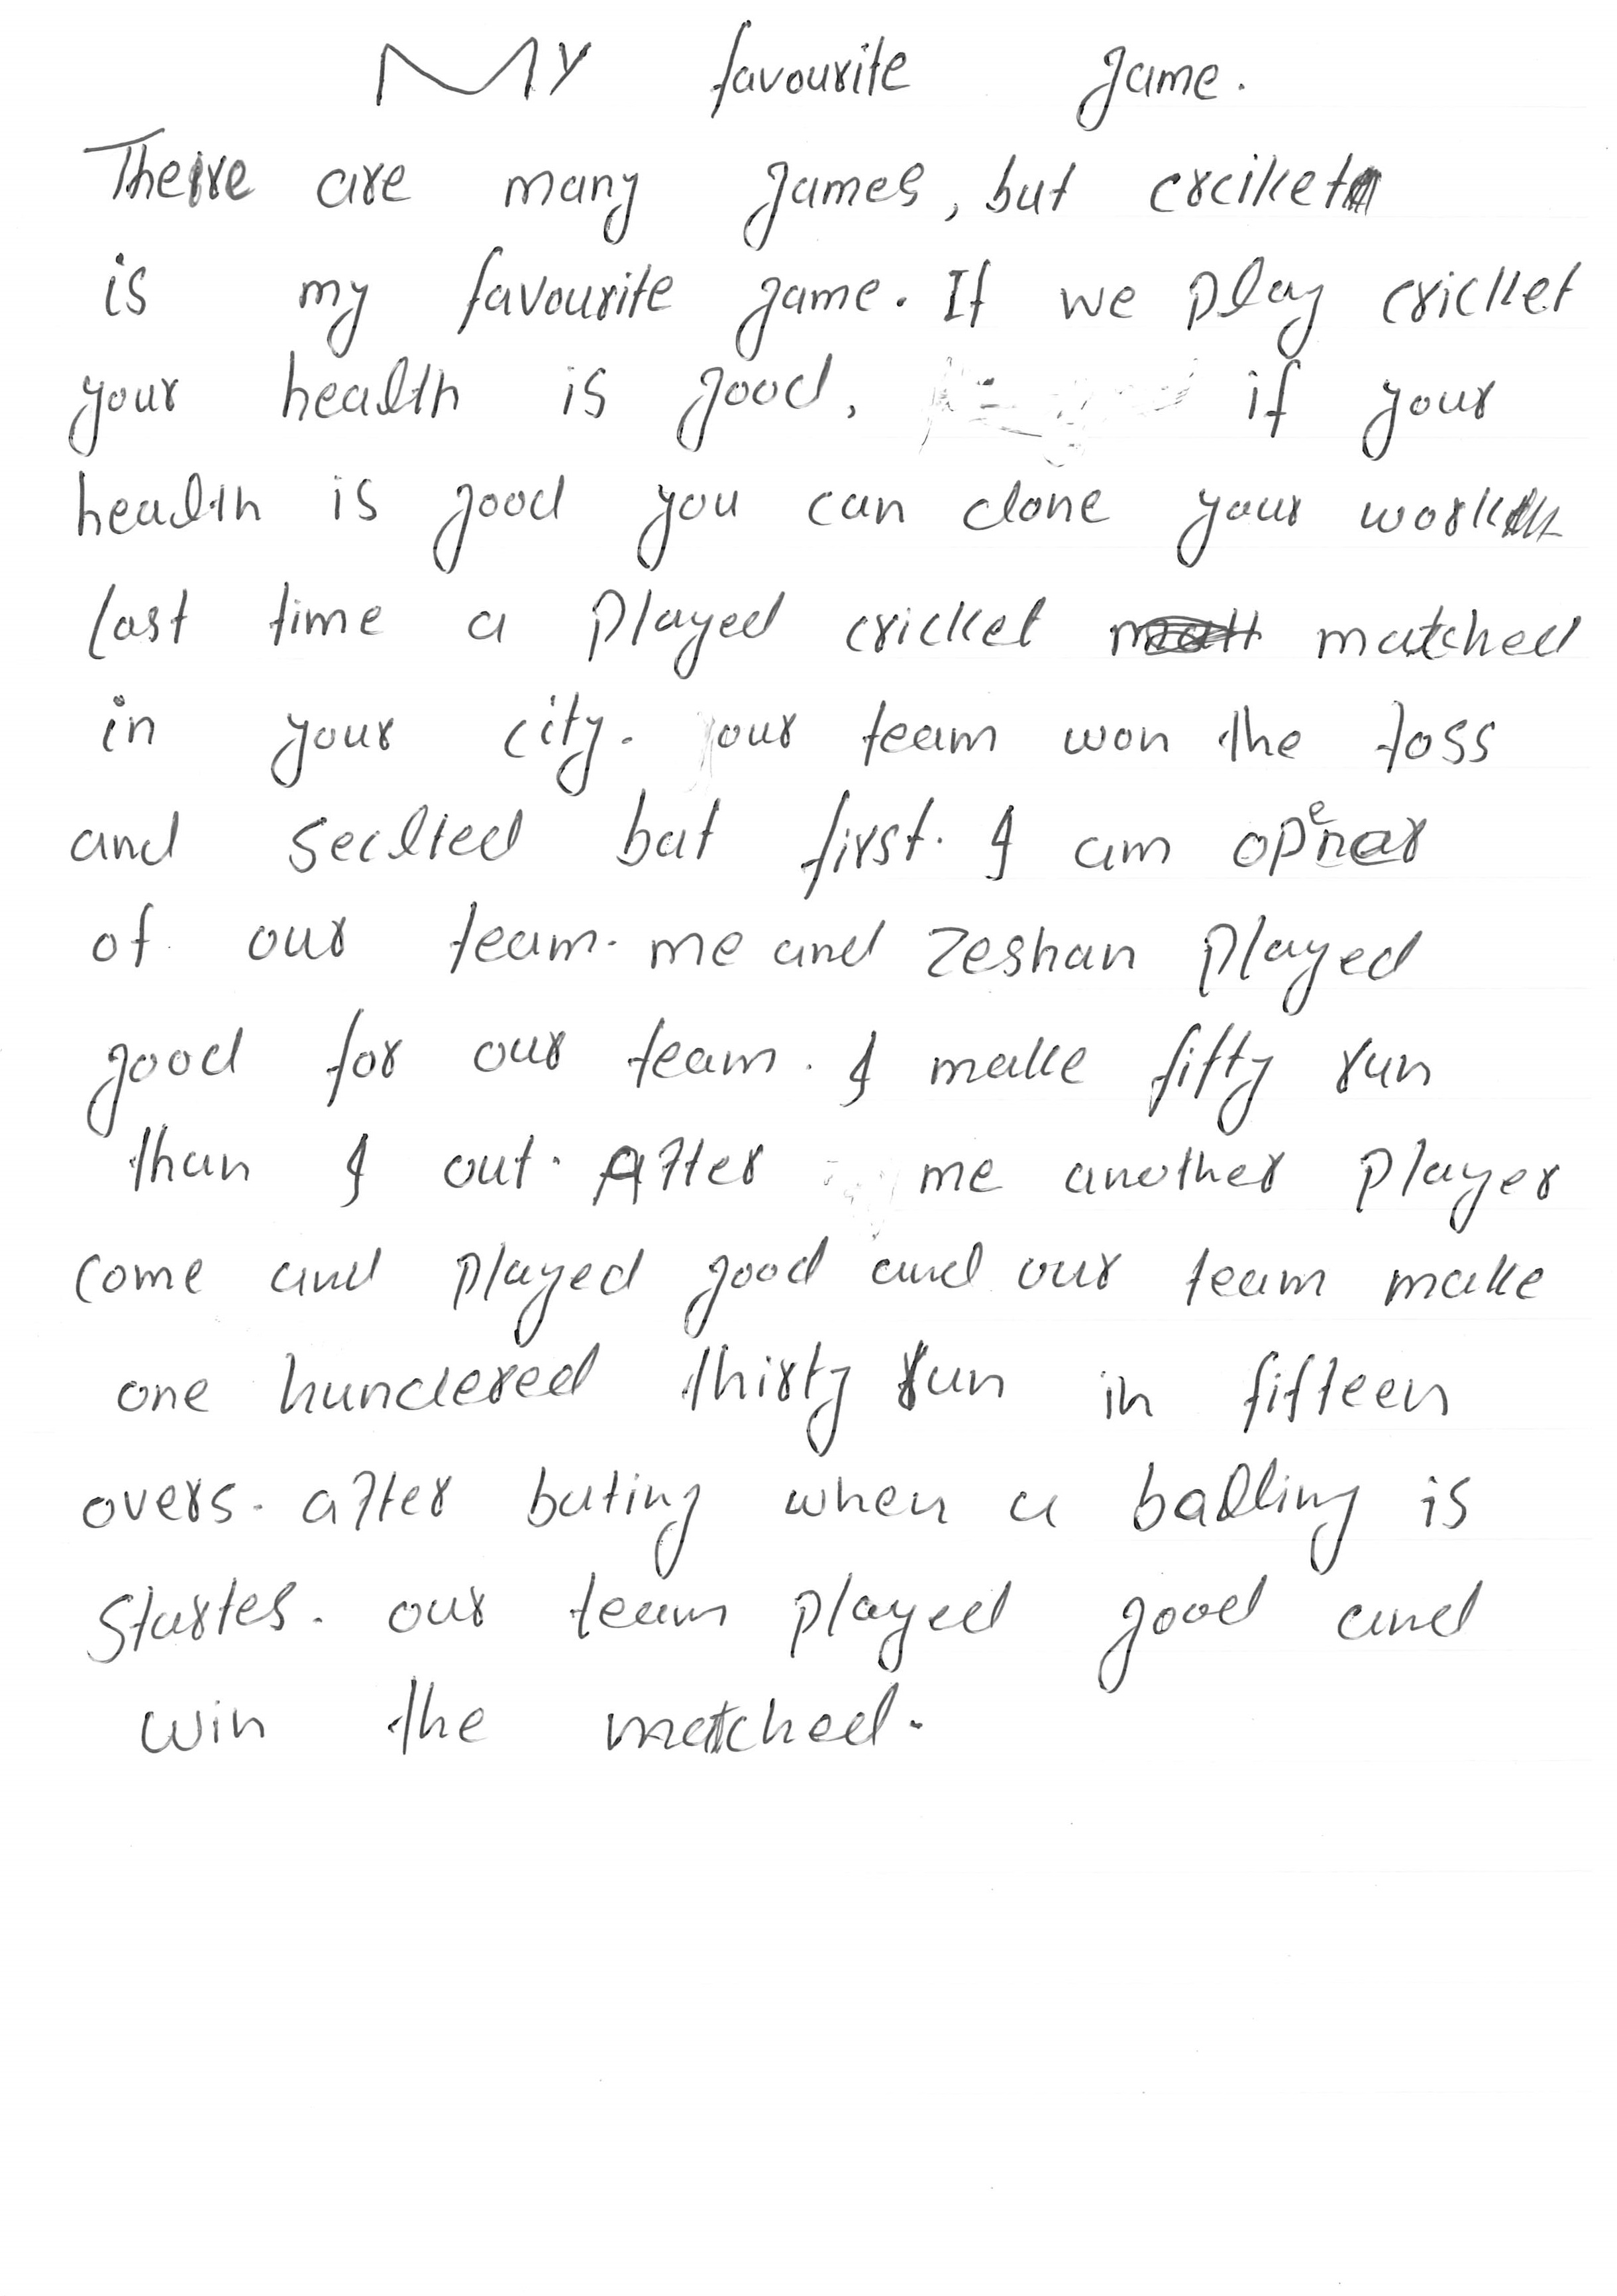 My favourite game.
There are many games, but crciket
is my favourite game. If we play cricket
your health is good. if your
health is good you can done your work
last time a played cricket matched
in your city. our team won the toss
and seclted bat first. I am opener
of our team. me and Zeshan played
good for our team. I make fifty run
than I out. After me another player
come and played good and our team make
one hundered thirty run in fifteen
overs. after bating when a balling is
startes. our team played good and
win the matched.